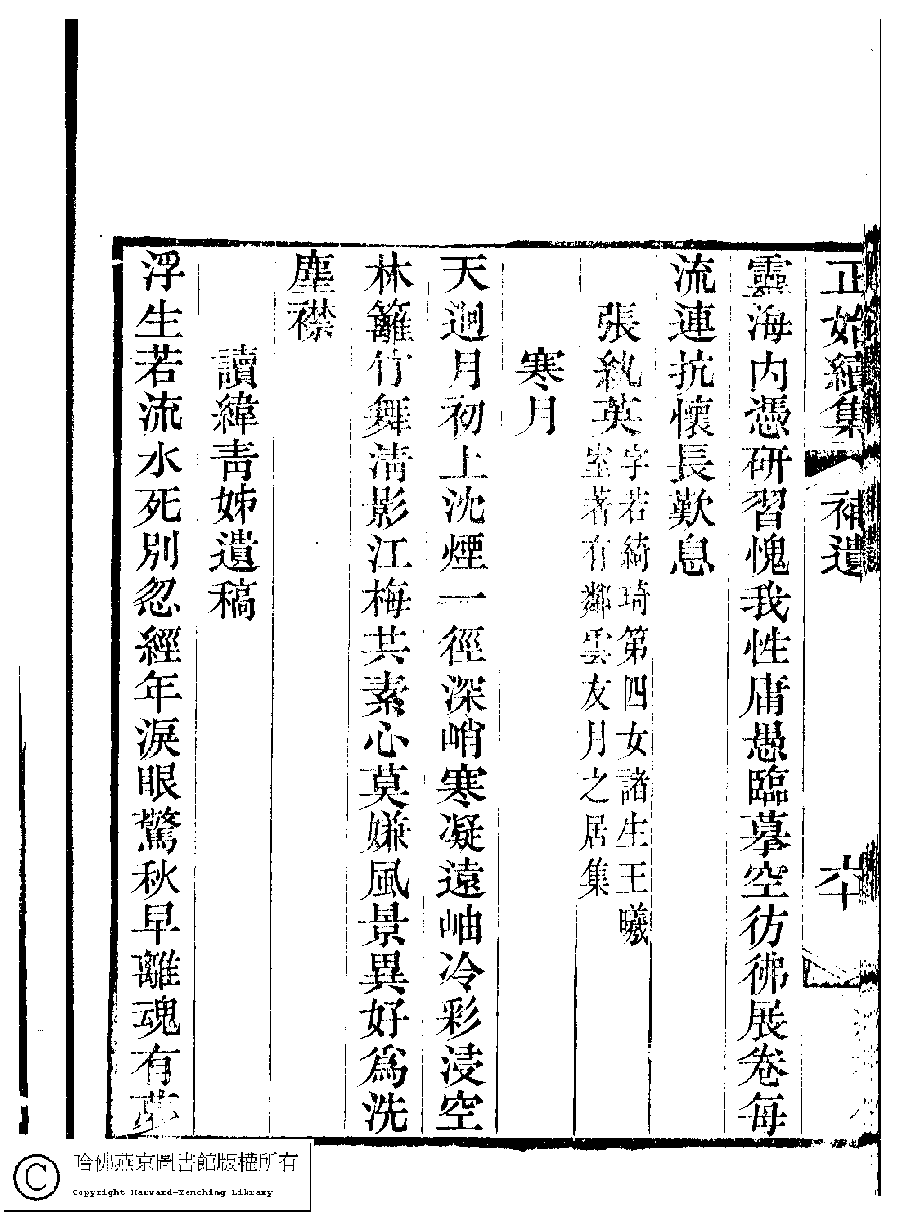 正始續集 補遺 六十
靈海内憑研習愧我性庸愚臨摹空彷彿展卷每
流連抗懷長歎息
張紈英字若綺琦第四女諸生王曦
室著有鄰雲友月之居集
寒月
天迥月初上沈煙一徑深峭寒凝遠岫冷彩浸空
林籬竹舞淸影江梅共素心莫嫌風景異好爲洗
塵襟
讀緯靑姊遺稿
浮生若流水死別忽經年淚眼驚秋早離魂有夢
哈佛燕京圖書館版權所有
Copyright Harvard-Yenching Library